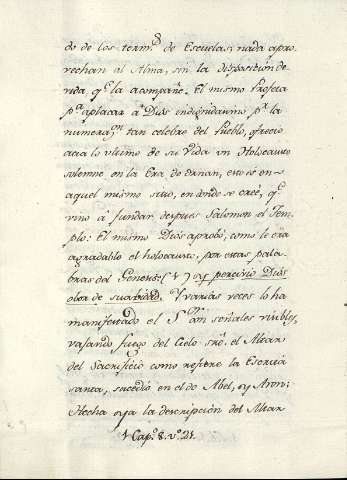 do de los term.s de Escuelas; nada apro
vechan al Alma, sin la disposición de
vida q.e la acompañe. El mismo Profeta
p.a aplacar a Dios indignadissimo p.r la
numerac.on tan celebre del Pueblo, ofrecio
acia lo ultimo de su Vida un Holocausto
solemne en la Era de Ornan, esto es en
aquel mismo sitio, en donde se creé, q.e
vino á fundar despues Salomon el Tem
plo: El mismo Dios aprobó, como le era
agradable el holocausto, por estas pala
bras del Genesis: (1) y percivio Dios
olor de suavidad. Y varias veces lo ha
manifestado el S.or con señales visibles,
vajando fuego del Cielo sre. el Altar
del Sacrificio como refiere la Escrit.a
santa, sucedio en el de Abel, y Aron:
Hecha ya la descripcion del Altar
1 Cap.o 8. v.o 21.